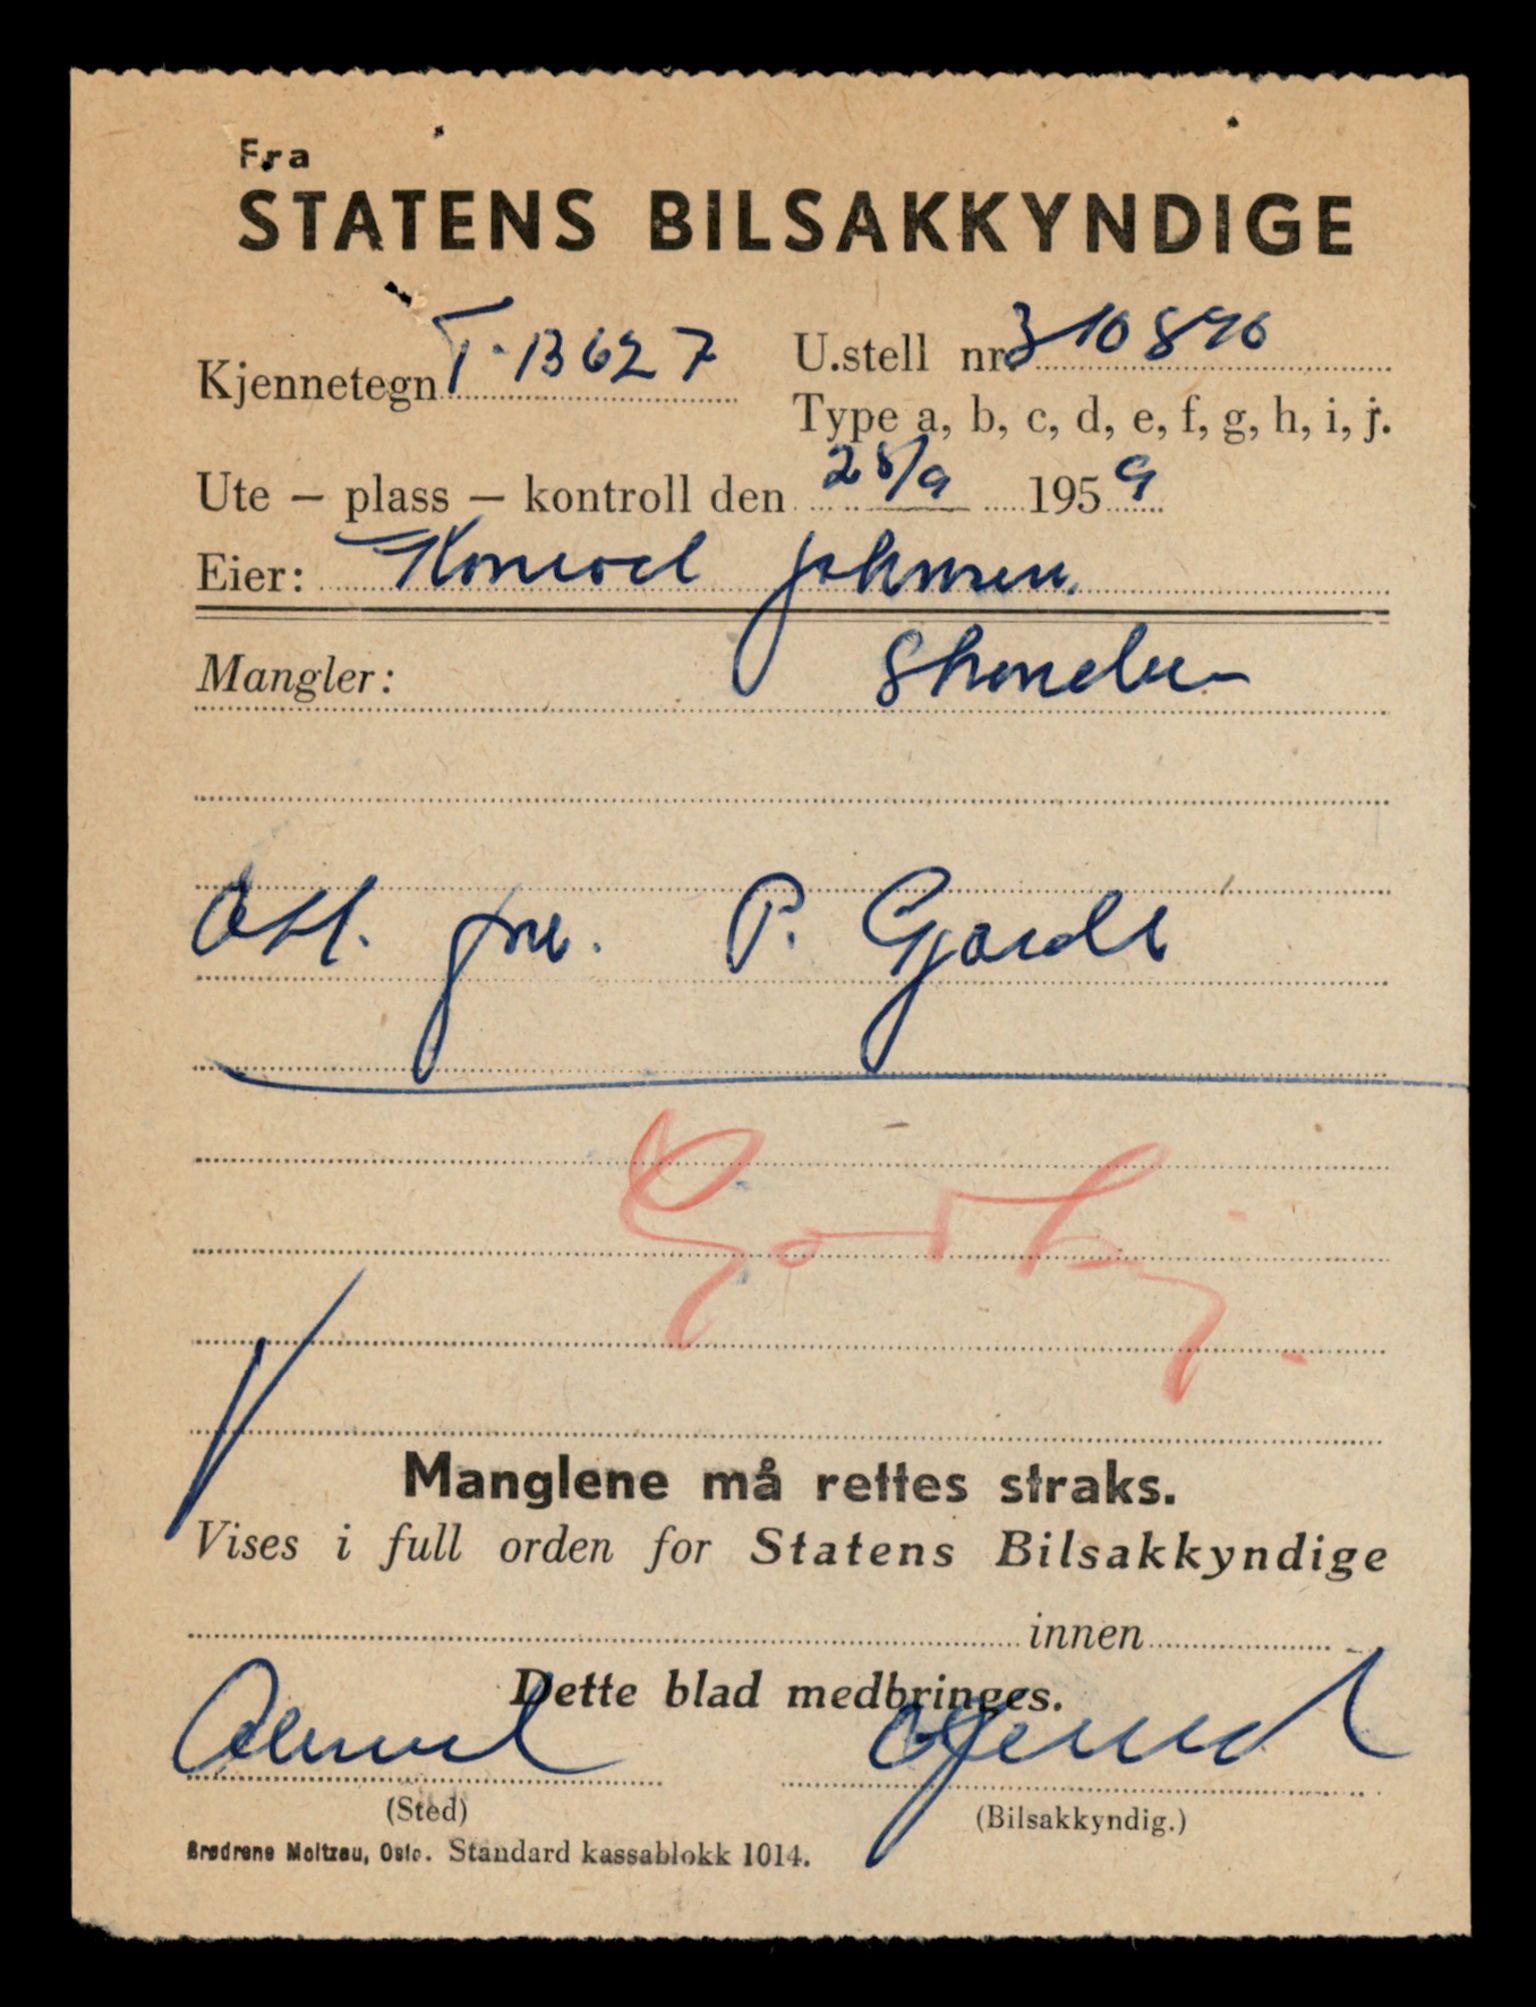 Fra
STATENS BILSAKKYNDIGE
Kjennetegn T-13627
U.stell nr. 310876
Type a, b, c, d, e, f, g, h, i, j.
Ute – plass – kontroll den 28/9 1959
Eier: Konrad Johnsen.
Mangler:
P. Gjærde
Manglene må rettes straks.
Vises i full orden for Statens Bilsakkyndige
innen
Dette blad medbringes.
(Sted)
(Bilsakkyndig.)
Brødrene Moltzau, Oslo. Standard kassablokk 1014.